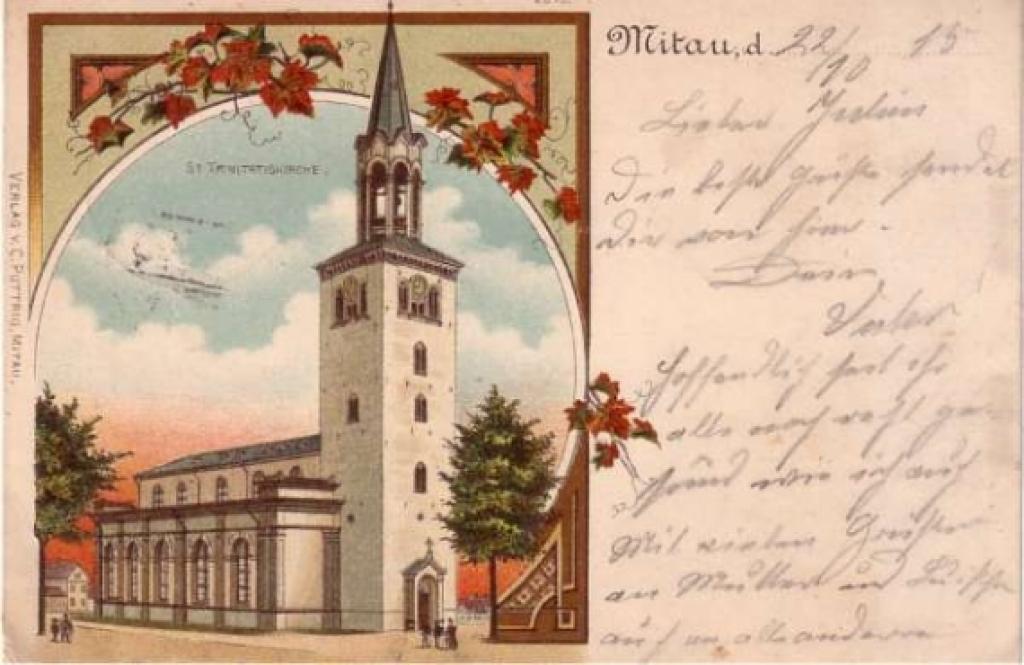 VERLAG V. C. PUTTRIG, MITAU.
ST TRINITATISKIRCHE.
Mitau, d. 22/10 15
Lieber Julius
Die beste Grüße sendet
Dir von hier.
Dein
Vater
Hoffendlich seit ihr
alle noch recht ge-
sund wie ich auch
Mit vielen Grüßen
an Mutter und
auch an alle anderen